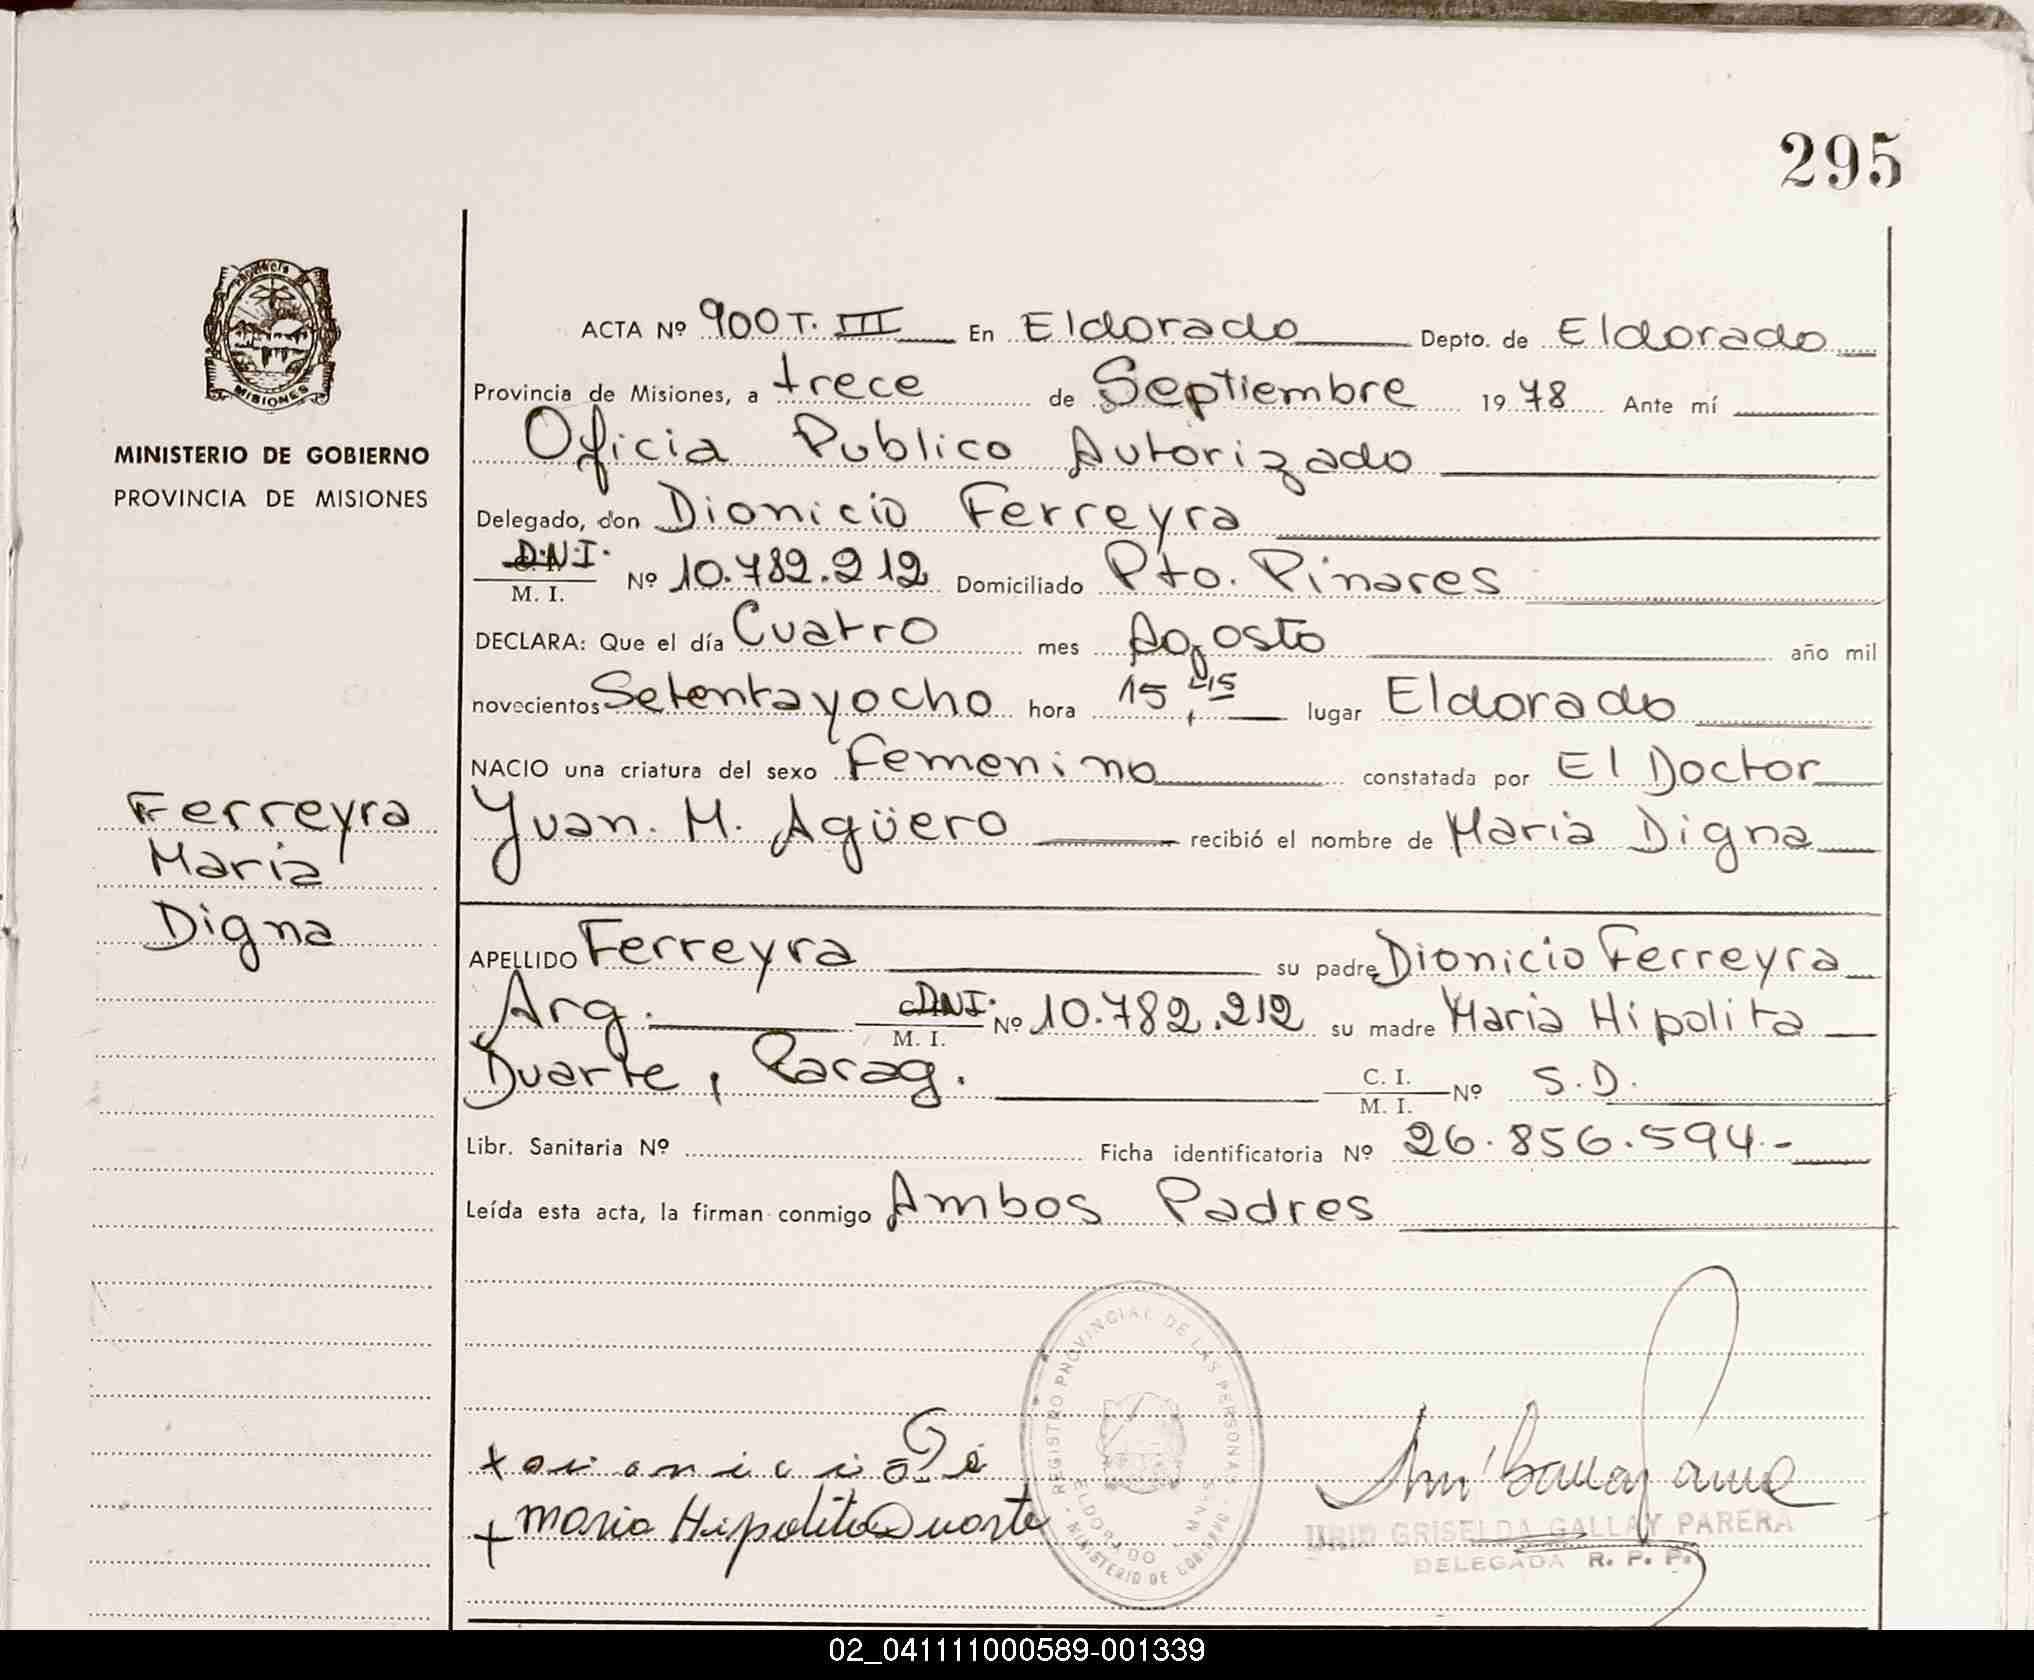 295
Provincia
MISIONES
MINISTERIO DE GOBIERNO
PROVINCIA DE MISIONES
Ferreyra
Maria
Digna
ACTA Nº 900 T. III En Eldorado Depto. de Eldorado
Provincia de Misiones, a trece de Septiembre 1978 Ante mí
Oficia Publico Autorizado
Delegado, don Dionicio Ferreyra
D.N.I. M. I. Nº 10.782.212 Domiciliado Pto. Pinares
DECLARA: Que el día Cuatro mes Agosto año mil
novecientos Setentayocho hora 15,45 lugar Eldorado
NACIO una criatura del sexo Femenino constatada por El Doctor
Juan. M. Agüero recibió el nombre de Maria Digna
APELLIDO Ferreyra su padre Dionicio Ferreyra
Arg. DNI. M. I. Nº 10.782.212 su madre Maria Hipolita
Duarte, Parag. C. I. M. I. Nº S.D.
Libr. Sanitaria Nº Ficha identificatoria Nº 26.856.594.-
Leída esta acta, la firman conmigo Ambos Padres
REGISTRO PROVINCIAL DE LAS PERSONAS
ELDORADO - MNES.
MINISTERIO DE GOBIERNO
+ maria Hipolita Duarte
GRISELDA GALLAY PARERA
DELEGADA R. P. P.
02_041111000589-001339